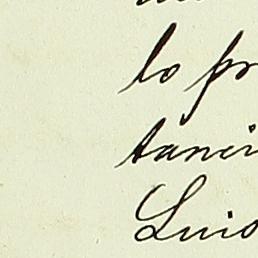 lo pr
tanci
Luis